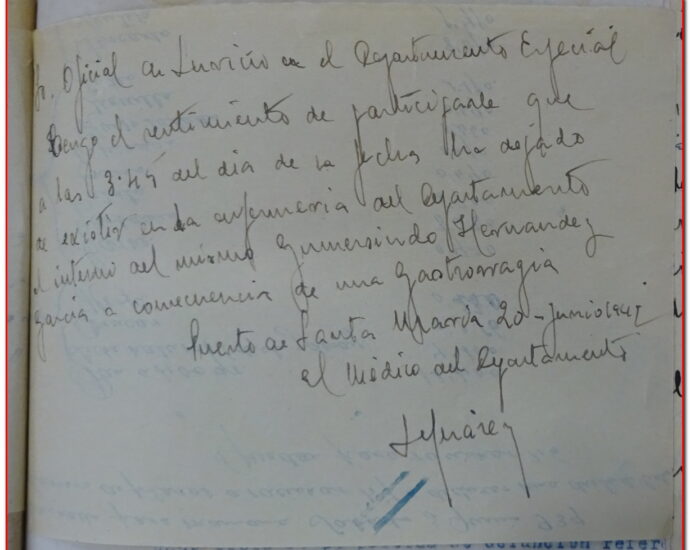 Sr. Oficial en Servicio en el Departamento Especial
Tengo el sentimiento de participarle que
a las 3.45 del dia de la fecha ha dejado
de existir en la enfermeria del Departamento
el interno del mismo Gumersindo Hernandez
Garcia a consecuencia de una Gastrorragia
Puerto de Santa Maria 20 - Junio 1941
El Médico del Departamento